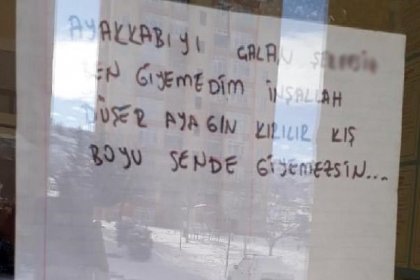 AYAKKABIYI ÇALAN
BEN GİYEMEDİM İNŞALLAH
DÜŞER AYAGIN KIRILIR KIŞ
BOYU SENDE GİYEMEZSİN...